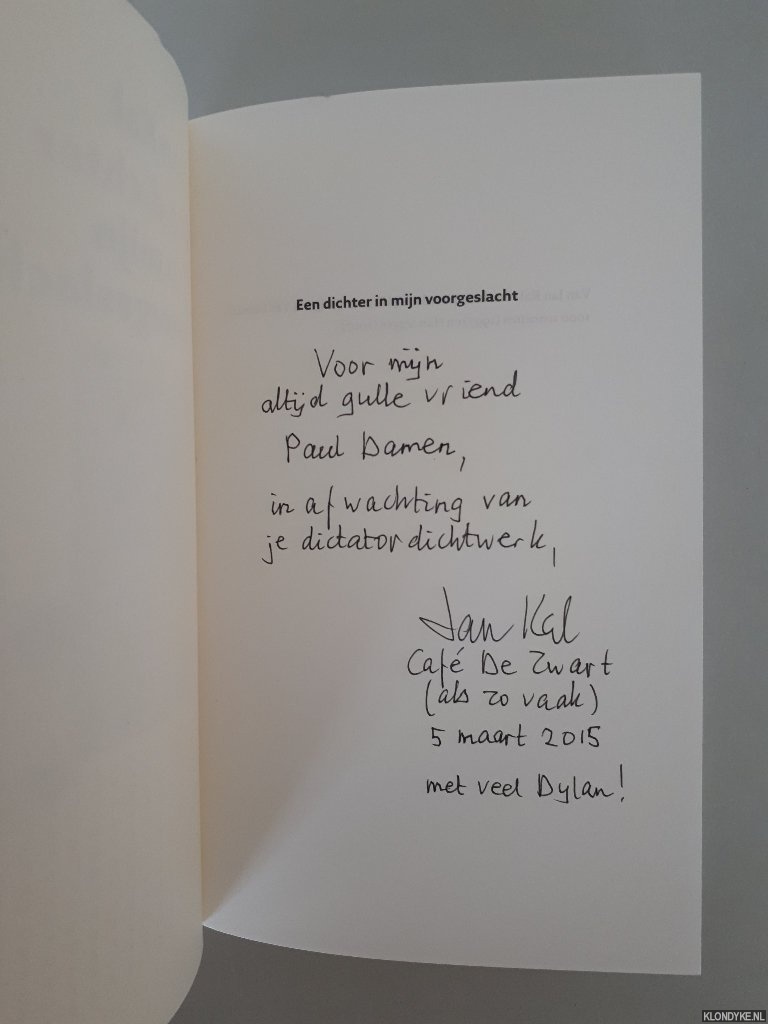 Een dichter in mijn voorgeslacht
Voor mijn
altijd gulle vriend
Paul Damen,
in afwachting van
je dictatordichtwerk,
Jan Kal
Café De Zwart
(als zo vaak)
5 maart 2015
met veel Dylan!
KLONDYKE.NL